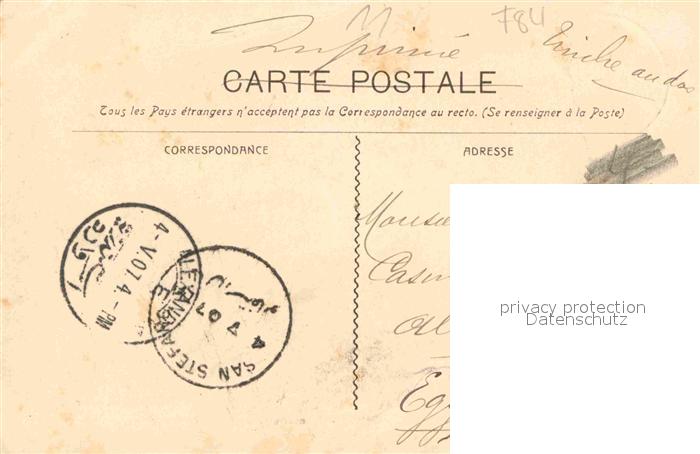 11 784
Imprimé Timbre au dos
CARTE POSTALE
Tous les Pays étrangers n'acceptent pas la Correspondance au recto. (Se renseigner à la Poste)
CORRESPONDANCE ADRESSE
Monsie
Casin
Al
Eg
4-V 07 4-PM
ALEXAND
4 V 07
SAN STEFANO
privacy protection
Datenschutz